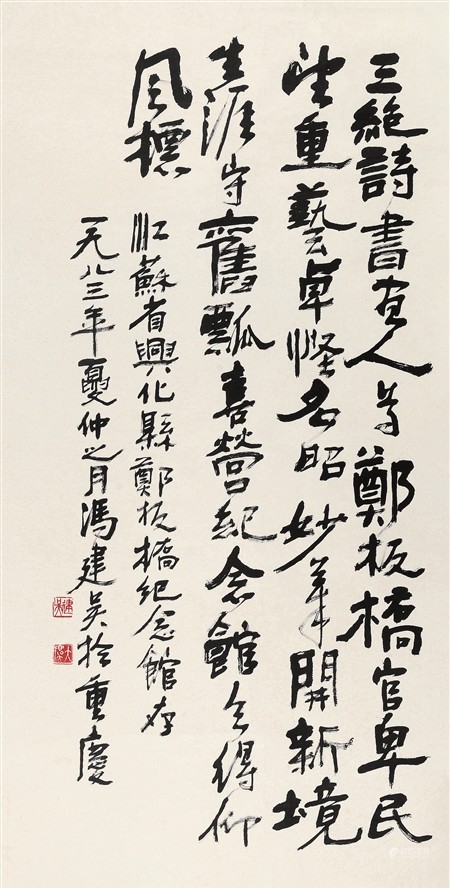 三絶詩書画人鄭板橋官卑民
望重藝卓怪名昭妙筆開新境
生涯守舊瓢喜營紀念館今得仰
風標
江蘇省興化縣鄭板橋紀念館存
一九八三年夏仲之月馮建吴於重慶